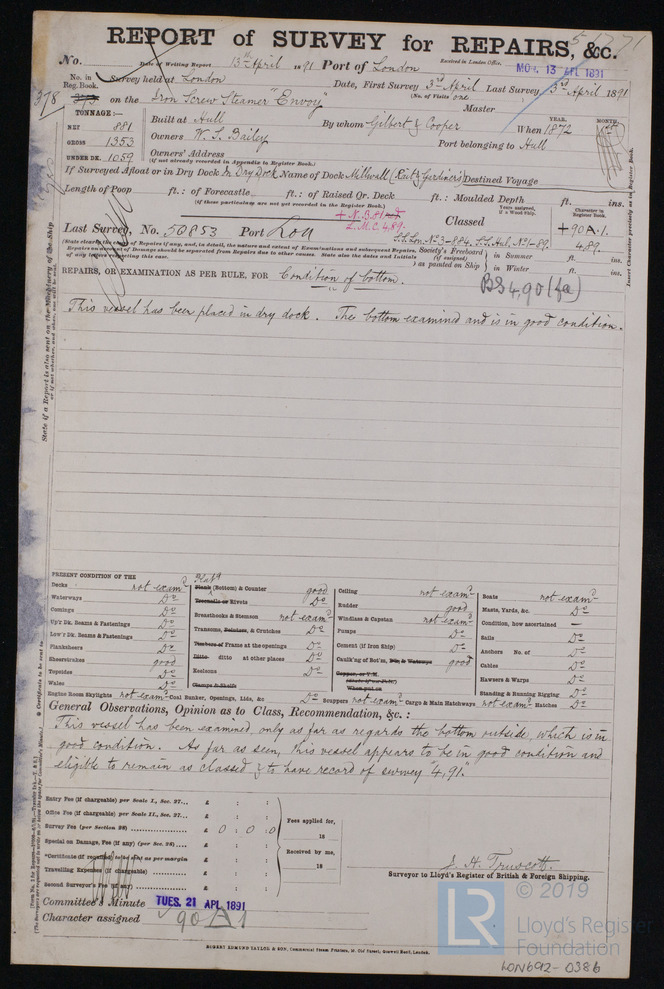 REPORT of SURVEY for REPAIRS, &c.
No. Date of Writing Report 13th April 1891 Port of London Received in London Office, MON. 13 APL 1891
No. in Reg. Book. Survey held at London Date, First Survey 3rd April Last Survey 3rd April 1891
(No. of Visits one
378 on the Iron Screw Steamer "Envoy" Master
TONNAGE:—
NET 881 Built at Hull By whom Gilbert & Cooper When YEAR. 1872 MONTH.
GROSS 1353 Owners W. S. Bailey Port belonging to Hull
UNDER DK. 1059 Owners' Address
(if not already recorded in Appendix to Register Book.)
If Surveyed Afloat or in Dry Dock In Dry Dock Name of Dock Millwall Destined Voyage
Length of Poop ft.: of Forecastle ft.: of Raised Qr. Deck ft.: Moulded Depth ft. ins.
(If these particulars are not yet recorded in the Register Book.)
L.M.C. 4.89.
Years assigned, if a Wood Ship.
Character in Register Book.
Last Survey, No. 50853 Port Lon Classed +90A.1.
S.S. Lon. No 3-8.84. S.S. Hul. No 1-89. 4.89.
Society's Freeboard (if assigned) as painted on Ship in Summer ft. ins.
in Winter ft. ins.
REPAIRS, OR EXAMINATION AS PER RULE, FOR Condition of bottom.
BS 4,90 (fa)
This vessel has been placed in dry dock. The bottom examined and is in good condition.
PRESENT CONDITION OF THE
Decks not examd
Waterways Do
Comings Do
Up'r Dk. Beams & Fastenings Do
Low'r Dk. Beams & Fastenings Do
Planksheers Do
Sheerstrakes good
Topsides Do
Wales Do
Engine Room Skylights not examd
Plank (Bottom) & Counter good
Treenails or Rivets Do
Breasthooks & Stemson not examd
Transoms, Pointers, & Crutches Do
Timbers of Frame at the openings Do
Ditto ditto at other places Do
Keelsons Do
Clamps & Shelfs
Coal Bunker, Openings, Lids, &c Do
Ceiling not examd
Rudder good
Windlass & Capstan not examd
Pumps Do
Cement (if Iron Ship) Do
Caulk'ng of Bot'm, Dk. & Waterways good
When put on
Scuppers not examd Cargo & Main Hatchways not examd Hatches Do
Boats not examd
Masts, Yards, &c. Do
Condition, how ascertained —
Sails Do
Anchors No. of Do
Cables Do
Hawsers & Warps Do
Standing & Running Rigging Do
General Observations, Opinion as to Class, Recommendation, &c.:
This vessel has been examined only as far as regards the bottom outside, which is in
good condition. As far as seen, this vessel appears to be in good condition and
eligible to remain as classed & to have record of survey "4,91."
Entry Fee (if chargeable) per Scale I., Sec. 27... £ : :
Office Fee (if chargeable) per Scale II., Sec. 27... £ : :
Survey Fee (per Section 28) £ 0 : 0 : 0
Special on Damage, Fee (if any) (per Sec. 28) £ : :
*Certificate (if required) to be sent as per margin £ : :
Travelling Expenses (if chargeable) £ : :
Second Surveyor's Fee (if any) £ : :
Fees applied for, 18
Received by me, 18
J. H. Truscott
Surveyor to Lloyd's Register of British & Foreign Shipping.
Committee's Minute TUES. 21 APL 1891
Character assigned 90A1
ROBERT EDMUND TAYLOR & SON, Commercial Steam Printers, 19, Old Street, Goswell Road, London.
LR
© 2019
Lloyd's Register
Foundation
LON692-0386